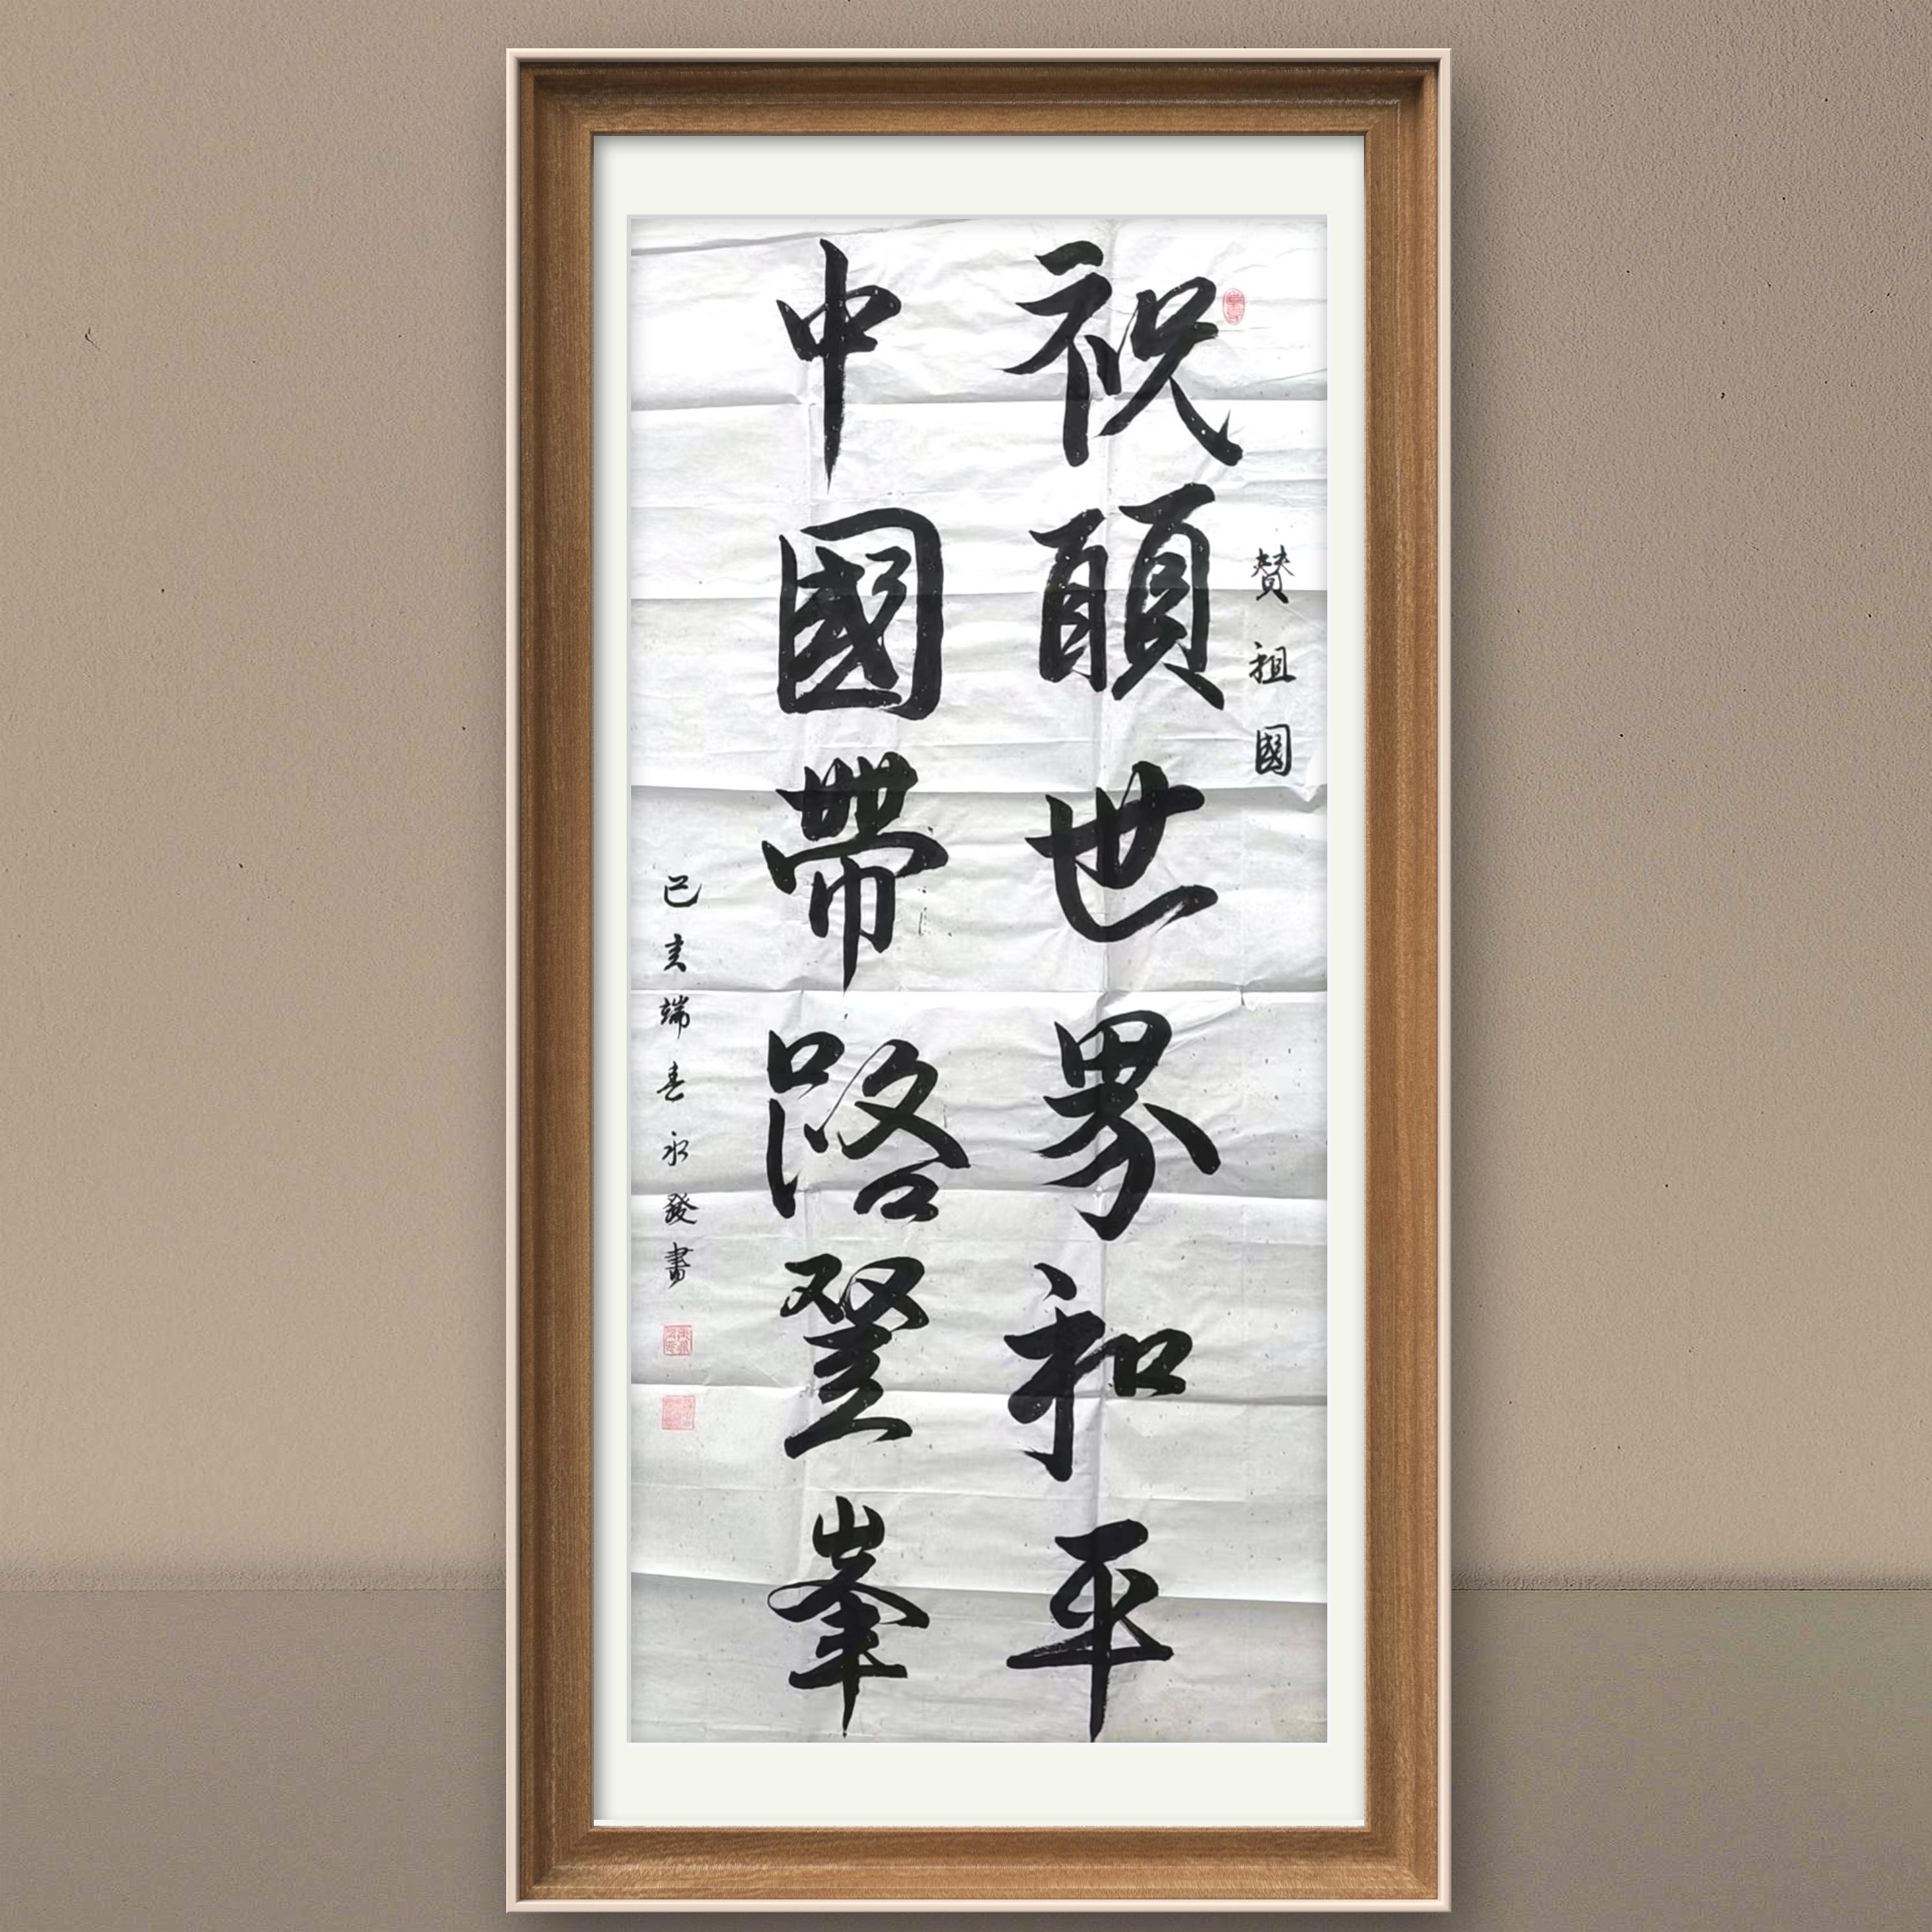 賛祖國
祝願世界和平
中國帶路登峯
己亥端春永發書